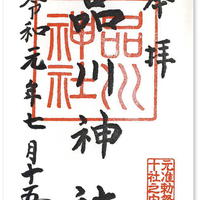 奉拝
品川神社
品川神社
令和元年七月十五
元准勅祭
十社之内